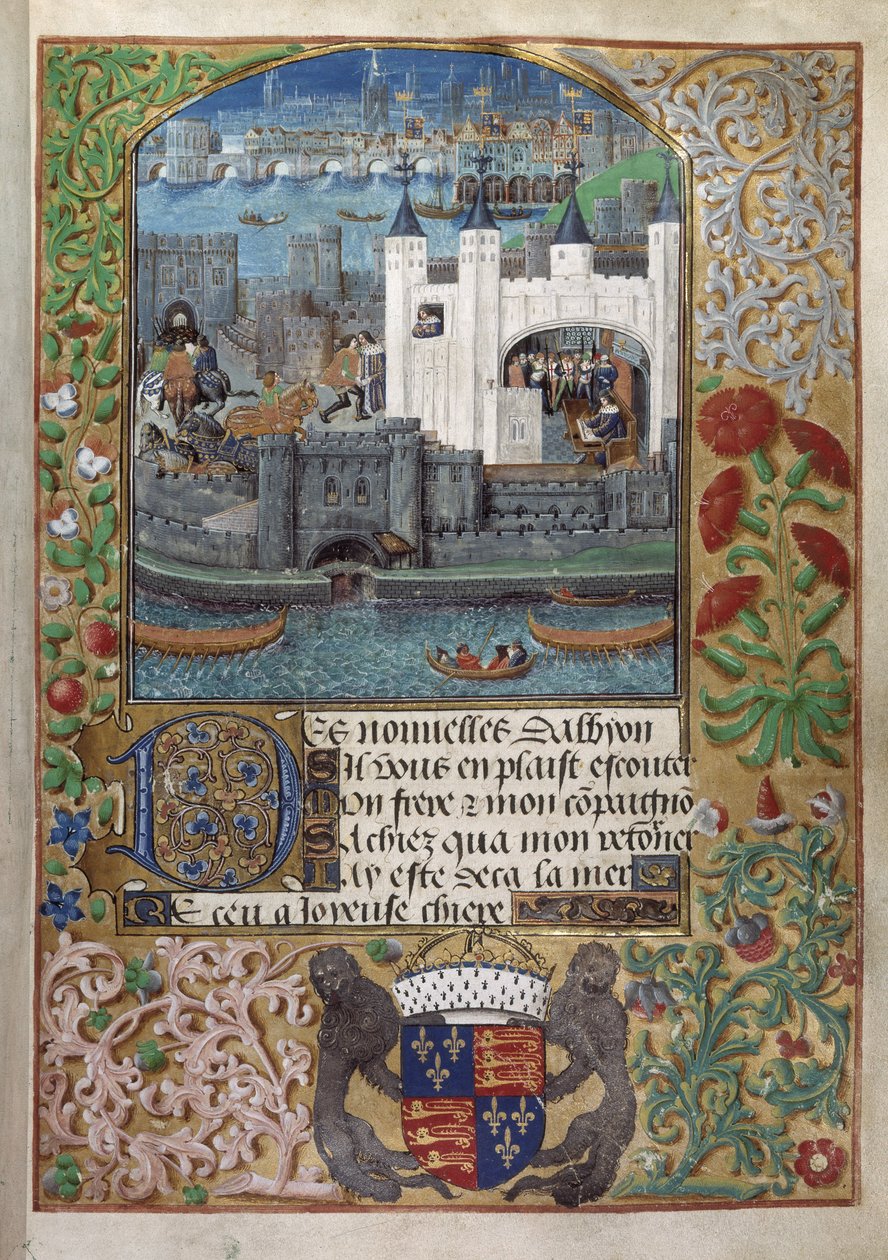 Des nouuelles Dalbyon
Sil vous en plaist escouter
Mon frere & mon cōpaignō
Sachiez qua mon retōrner
Iay este deca la mer
Receu a Ioyeuse chiere